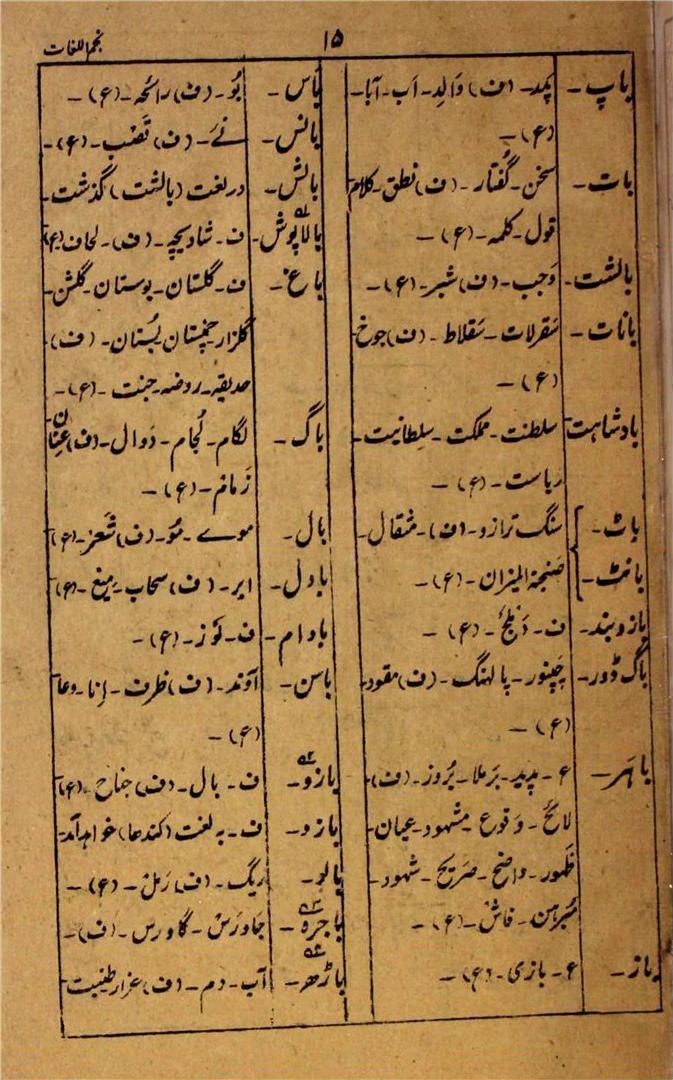 ۱۵
نجم اللغات
باپ - پدر - (ف) والِد - اَب - آبا -
(ع) -
بات - سخن - گُفتار - (ف) نطق - کلام
قول - کلمہ - (ع) -
بالشت - وَجب - (ف) شبر - (ع) -
بانات - سَقرلات - سَقلاط - (ف) جوخ
(ع) -
بادشاہت - سلطنت - مملکت - سلطانیت -
ریاست - (ع) -
باٹ - سنگ ترازو - (ف) - مثقال -
بانٹ - صنجۃ المیزان - (ع) -
بازوبند - ف - دُملج - (ع) -
باگ ڈور - پالہنگ - (ف) مقود -
(ع) -
باہَر - ع - پدید - بَرملا - بُروز - (ف) -
لائح - وقوع - مشہود - عیان -
ظہور - واضح - صریح - شہود -
مُبرہن - فاش - (ع) -
باز - ع - بازی - (ع) -
باس - بُو - (ف) رائحہ - (ع) -
بانس - نَے - (ف) قَصَب - (ع) -
بالش - در لغت (بالشت) گذشت -
بالاپوش - ف - شادیچہ - (ف) - لحاف (ع)
باغ - ف - گلستان - بوستان - گلشن -
گلزار - چمنستان - بُستان - (ف)
حدیقہ - روضہ - جنت - (ع) -
باگ - لگام - لُجام - دَوال - (ف) عِنان
زَمام - (ع) -
بال - موے - مُو - (ف) شَعر - (ع)
بادل - ابر - (ف) سحاب - میغ - (ع)
بادام - ف - لَوز - (ع) -
باسن - آوند - (ف) ظرف - اِنا - وعا
(ع) -
بازو - ف - بال - (ف) جناح - (ع)
بازو - ف - بہ لغت (کندھا) خواہد آمد -
بالو - ریگ - (ف) رَمل - (ع) -
باجرہ - جاوَرس - گاورس - (ف) -
باڑھ - آب - دم - (ف)